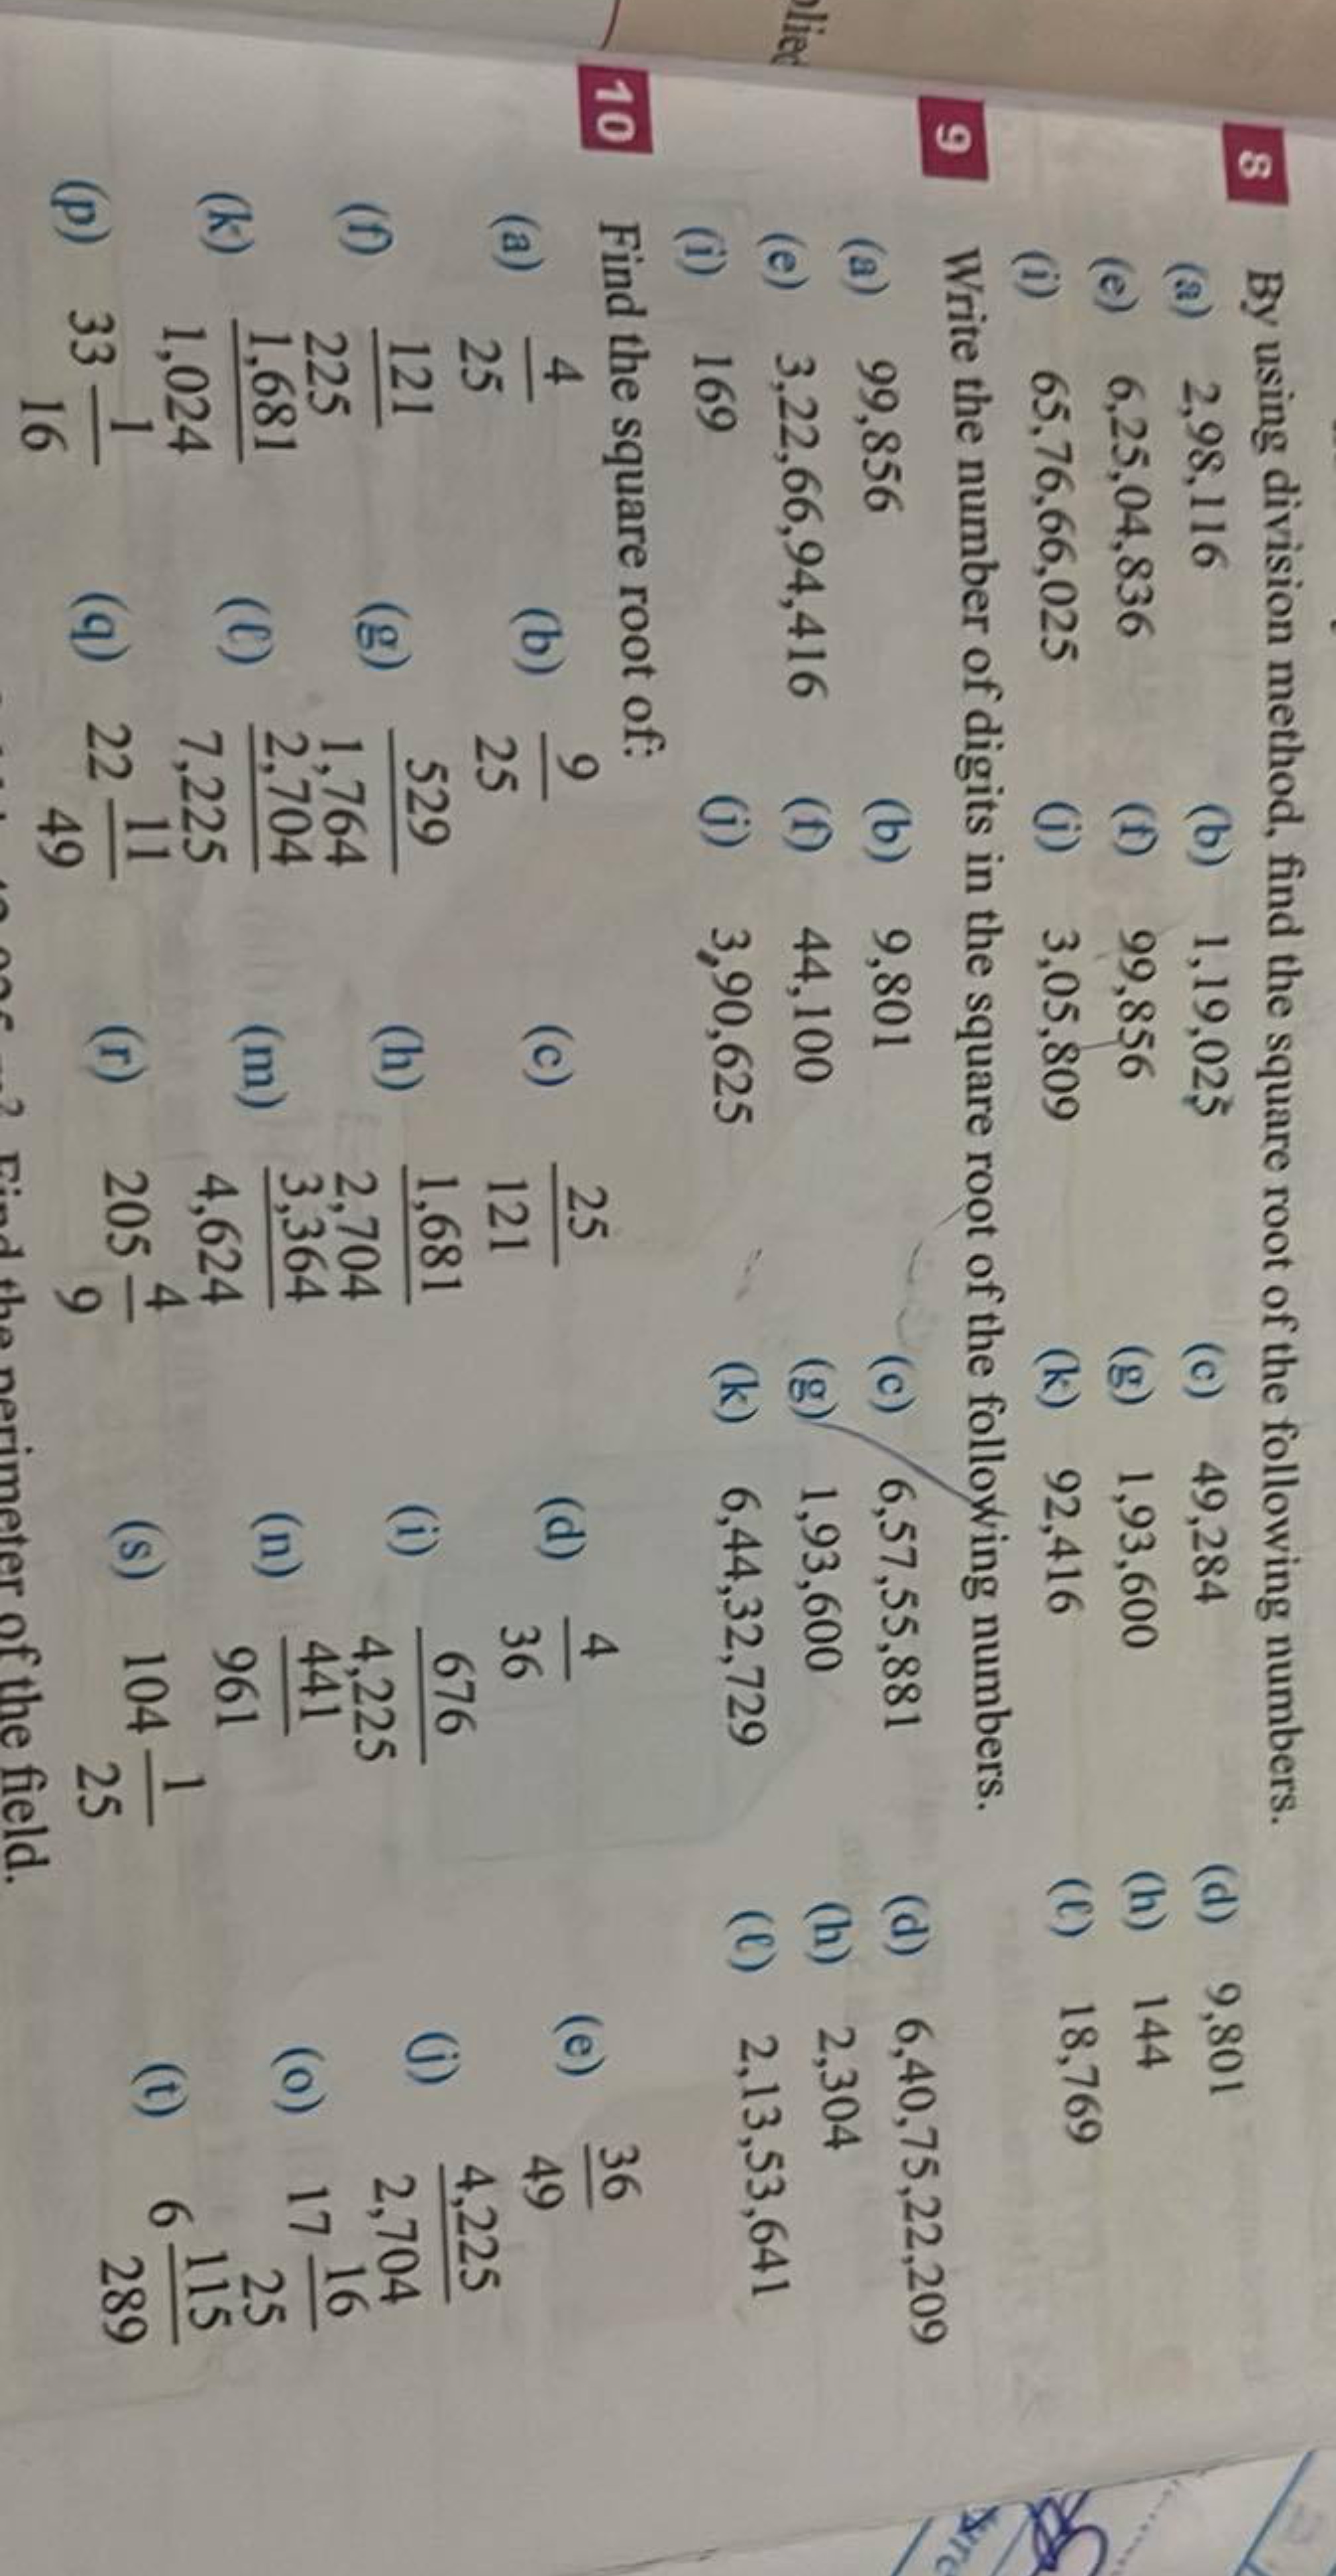 plied
8 By using division method, find the square root of the following numbers.
(a) 2,98,116 (b) 1,19,025 (c) 49,284 (d) 9,801
(e) 6,25,04,836 (f) 99,856 (g) 1,93,600 (h) 144
(i) 65,76,66,025 (j) 3,05,809 (k) 92,416 (ℓ) 18,769
9 Write the number of digits in the square root of the following numbers.
(a) 99,856 (b) 9,801 (c) 6,57,55,881 (d) 6,40,75,22,209
(e) 3,22,66,94,416 (f) 44,100 (g) 1,93,600 (h) 2,304
(i) 169 (j) 3,90,625 (k) 6,44,32,729 (ℓ) 2,13,53,641
10 Find the square root of:
(a) 4/25 (b) 9/25 (c) 25/121 (d) 4/36 (e) 36/49
(f) 121/225 (g) 529/1,764 (h) 1,681/2,704 (i) 676/4,225 (j) 4,225/2,704
(k) 1,681/1,024 (ℓ) 2,704/7,225 (m) 3,364/4,624 (n) 441/961 (o) 17 16/25
(p) 33 1/16 (q) 22 11/49 (r) 205 4/9 (s) 104 1/25 (t) 6 115/289
m². Find the perimeter of the field.